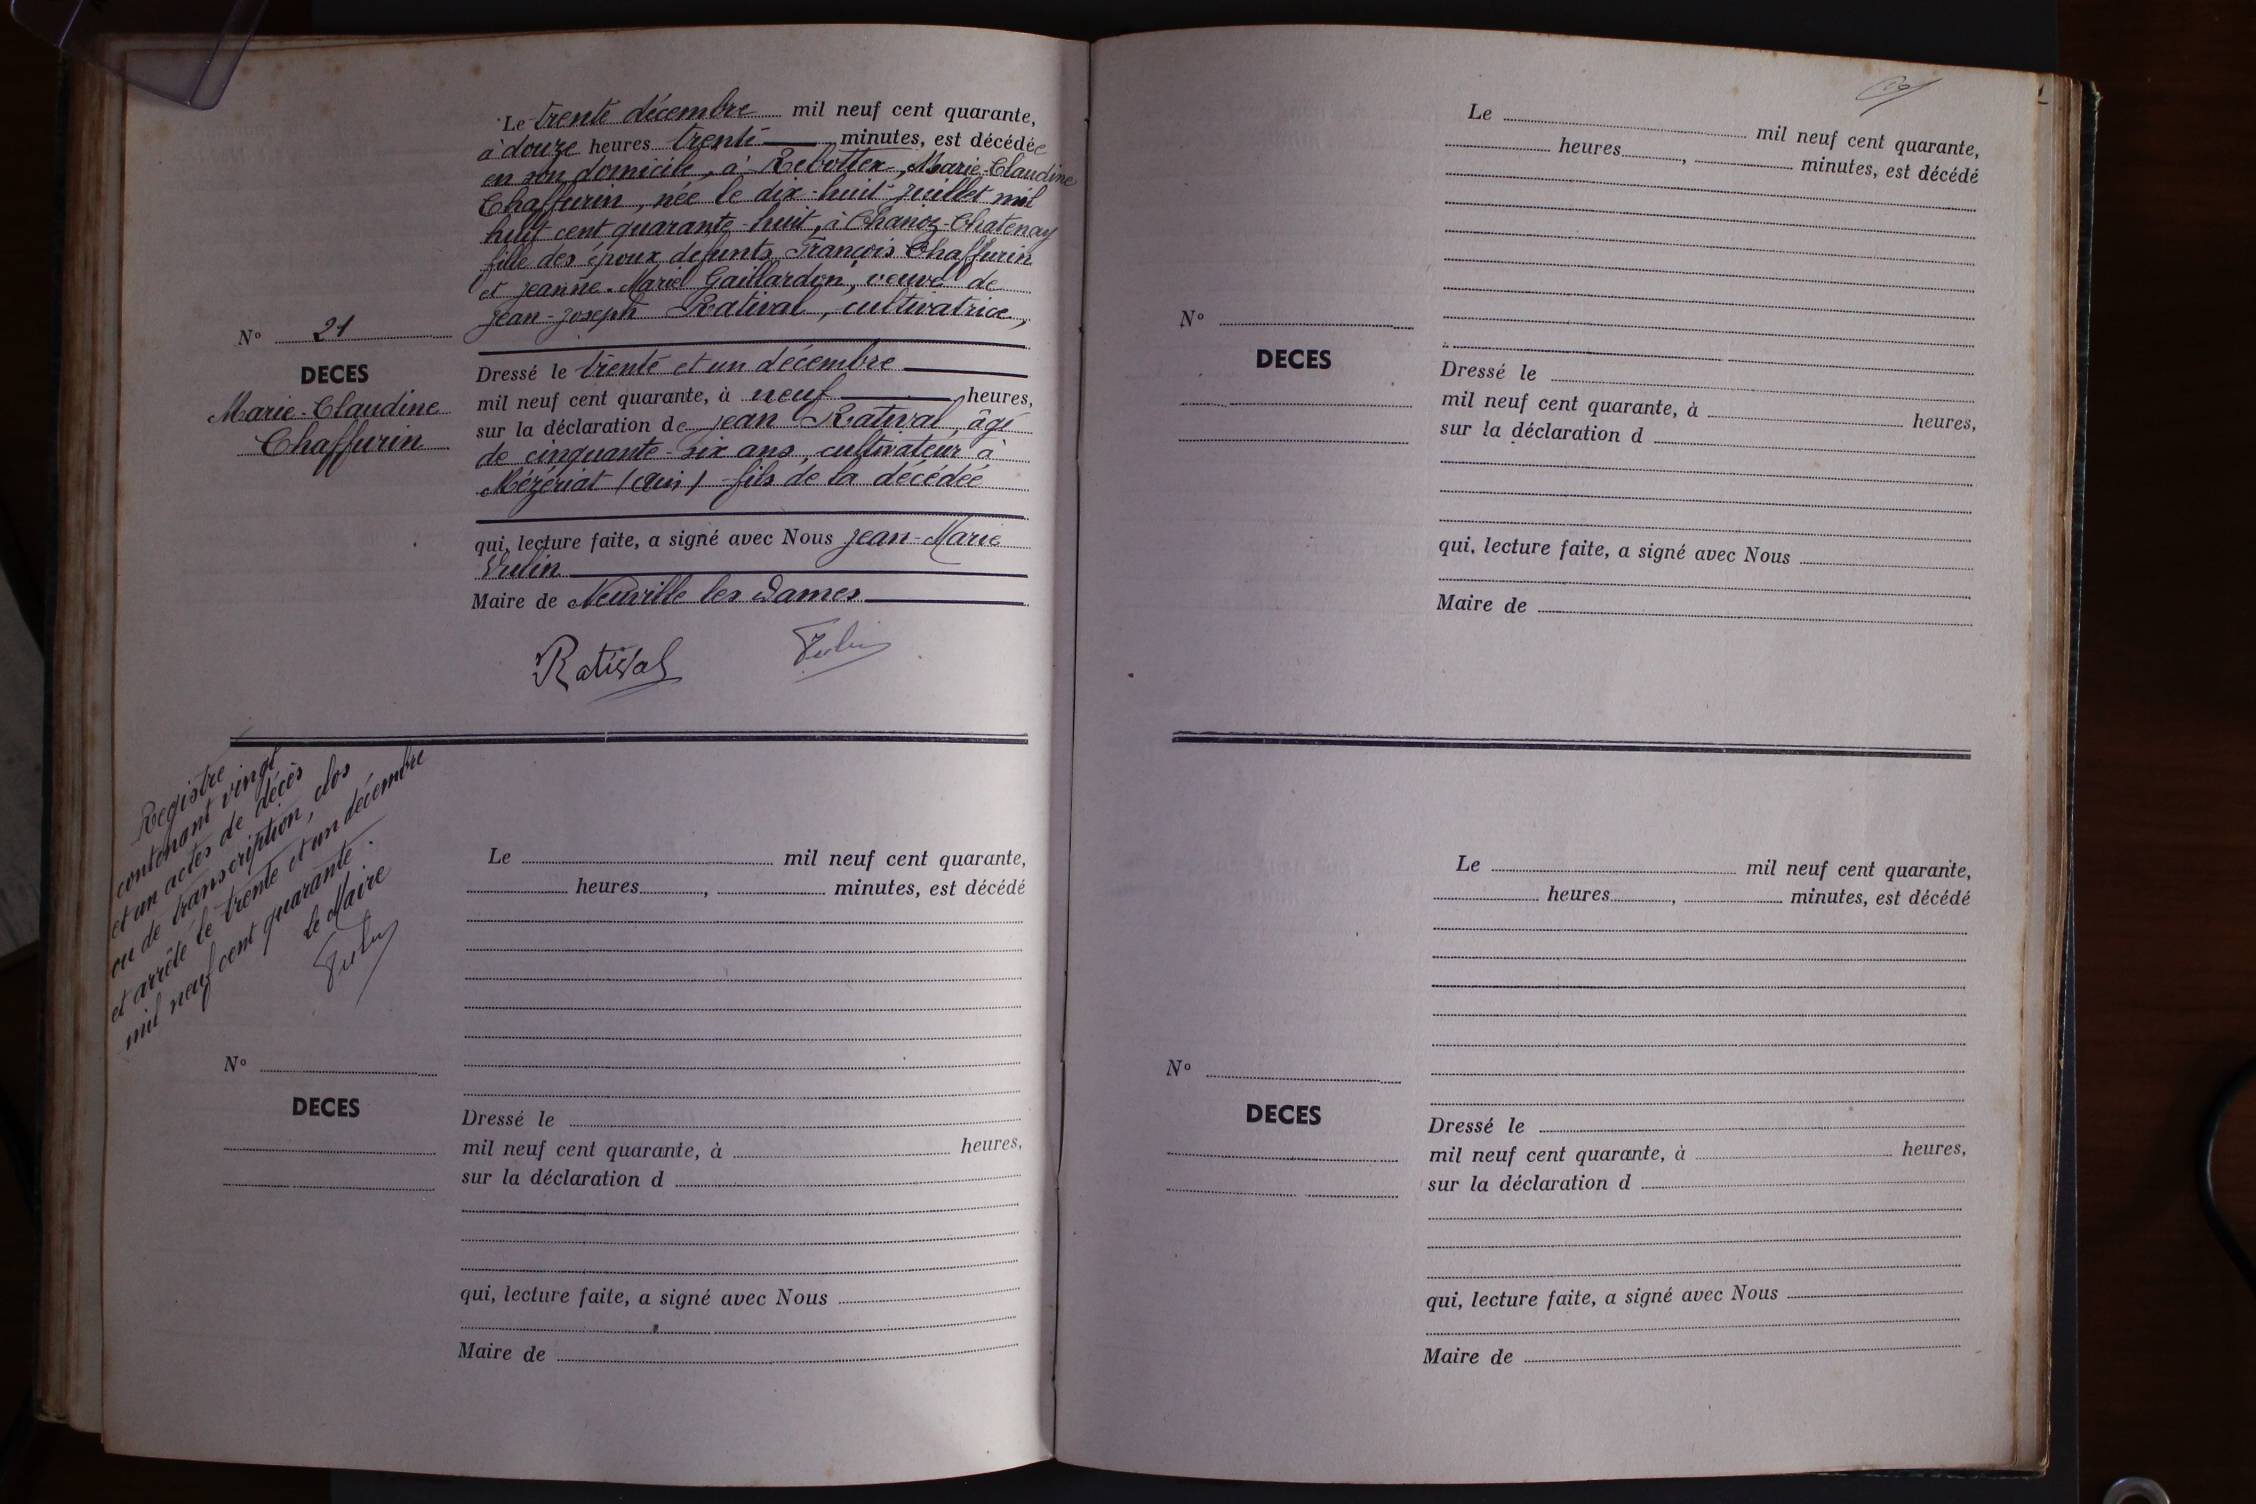 Le trente décembre mil neuf cent quarante,
à douze heures trente minutes, est décédée
en son domicile, à Rebotter, Marie-Claudine
Chaffurin, née le dix-huit juillet mil
huit cent quarante-huit, à Chanoz-Chatenay
fille des époux defunts François Chaffurin
et jeanne-Marie Gaillardon, veuve de
jean-joseph Ratival, cultivatrice,
N° 21
DECES
Marie-Claudine
Chaffurin
Dressé le trente et un décembre
mil neuf cent quarante, à neuf heures,
sur la déclaration de jean Ratival, âgé
de cinquante-six ans, cultivateur à
Mézériat (Ain) fils de la décédée
qui, lecture faite, a signé avec Nous jean-Marie
Maire de Neuville les Dames
Ratival
Registre
contenant vingt
et un actes de décès
ou de transcription, clos
et arrêté le trente et un décembre
mil neuf cent quarante.
le Maire
Le mil neuf cent quarante,
heures, minutes, est décédé
N°
DECES
Dressé le
mil neuf cent quarante, à heures,
sur la déclaration d
qui, lecture faite, a signé avec Nous
Maire de
Le mil neuf cent quarante,
heures, minutes, est décédé
N°
DECES
Dressé le
mil neuf cent quarante, à heures,
sur la déclaration d
qui, lecture faite, a signé avec Nous
Maire de
Le mil neuf cent quarante,
heures, minutes, est décédé
N°
DECES
Dressé le
mil neuf cent quarante, à heures,
sur la déclaration d
qui, lecture faite, a signé avec Nous
Maire de